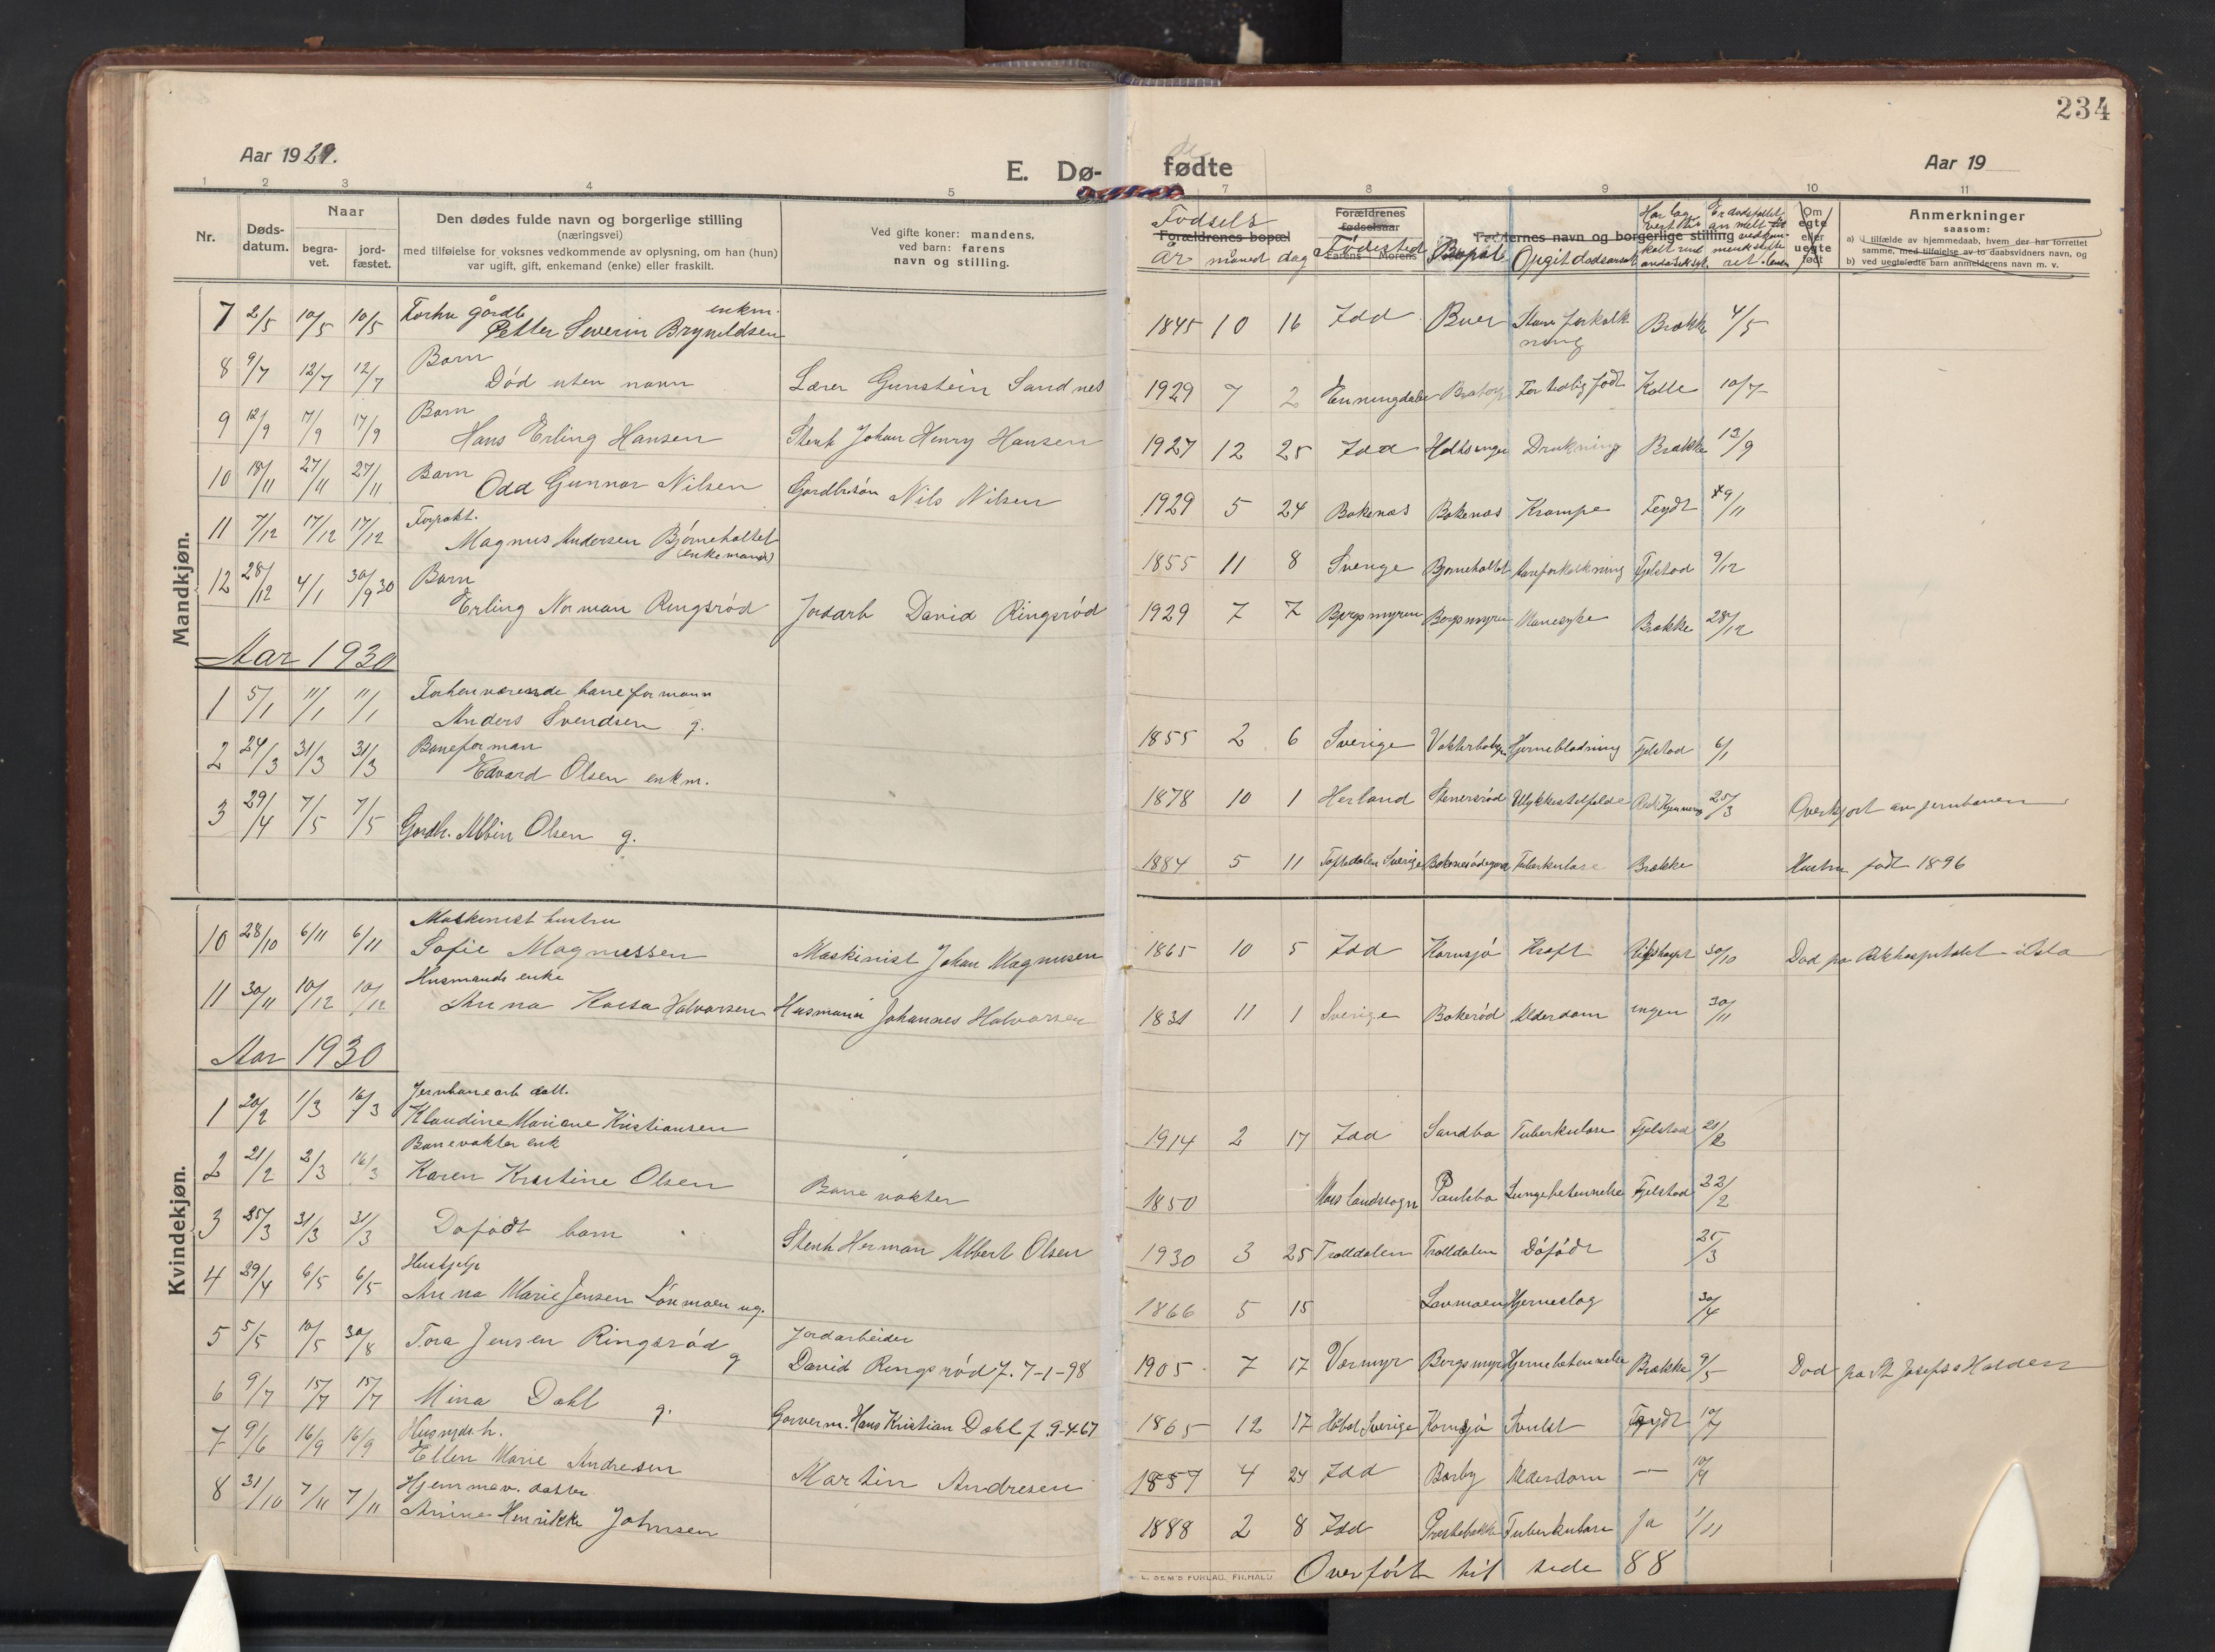 234
Aar 1929.
E. Dø-
fødte
Aar 19
1 2 3 4 5 7 8 9 10 11
Nr.
Døds-
datum.
Naar
begra-
vet.
jord-
fæstet.
Den dødes fulde navn og borgerlige stilling
(næringsvei)
med tilføielse for voksnes vedkommende av oplysning, om han (hun)
var ugift, gift, enkemand (enke) eller fraskilt.
Ved gifte koner: mandens,
ved barn: farens
navn og stilling.
Fødsels
Forældrenes bopæl
År maned dag
Forældrenes
fødselsaar
Farens Morens
Fødested
Bopæl
Fadernes navn og borgerlige stilling
Opgit dodsarsak
Om
egte
eller
uegte
født
Anmerkninger
saasom:
a) i tilfælde av hjemmedaab, hvem der har forrettet
samme, med tilføielse av to daabsvidners navn, og
b) ved uegtefødte barn anmelderens navn m. v.
Mandkjøn.
7 2/5 10/5 10/5 enkm.
Petter Severin Brynildsen
1845 10 16 Idd Buer Brække 4/5
8 9/7 12/7 12/7 Barn
Død uten navn Lærer Gunstein Sandnes
1929 7 2 For tidlig født Kolle 10/7
9 12/9 17/9 17/9 Barn
Hans Erling Hansen Stenh Johan Henry Hansen
1927 12 25 Idd Drukning Brække 13/9
10 18/11 27/11 27/11 Barn
Odd Gunnar Nilsen Nils Nilsen
1929 5 24 Bokenæs Bokenæs Krampe
11 7/12 17/12 17/12 Forpakt.
Magnus Andersen Bjørneholtet
(enkemand)
1855 11 8 Sverige Bjørneholtet Aareforkalkning Fjelstad 9/12
12 28/12 4/1 30/9 30 Barn
Erling Norman Ringsrød Jordarb David Ringsrød
1929 7 7 Bergsmyren Bergsmyren Brække 28/12
Aar 1930
1 5/1 11/1 11/1 Forhenværende baneformann
Anders Svendsen g.
1855 2 6 Sverige Hjerneblødning Fjelstad 6/1
2 24/3 31/3 31/3 Baneforman
Edvard Olsen enkm.
1878 10 1 Herland Stenersrød Ulykkestilfelde 25/3 Overkjørt av jernbanen
3 29/4 7/5 7/5 Gardbr. Albin Olsen g.
1884 5 11 Töftedalen Sverige Tuberkulose Brække Hustru født 1896
Kvindekjøn.
10 28/10 6/11 6/11 Maskinist hustru
Sofie Magnussen Maskinist Johan Magnusen
1865 10 5 Idd Kornsjø Kræft Rikshospt 30/10 Død på Rikshospitalet i Oslo
11 30/11 10/12 10/12 Husmands enke
Anna Kaisa Halvorsen Husmand Johannes Halvorsen
1831 11 1 Sverige Bokerød Alderdom ingen 30/11
Aar 1930
1 20/2 1/3 16/3 Jernbanearb datt.
Klaudine Mariane Kristiansen
1914 2 17 Idd Sandbo Tuberkulose Fjelstad 21/2
2 21/2 2/3 16/3 Banevokter enk
Karen Kristine Olsen Banevokter
1850 Moss landssogn Paulsbo Lungebetennelse Fjelstad 22/2
3 25/3 31/3 31/3 Døfødt barn Stenh Herman Albert Olsen
1930 3 25 Trolldalen Trolldalen Døfødt 25/3
4 29/4 6/5 6/5 Hushjelp
Anna Marie Jensen Lönmoen ug.
1866 5 15 Hjerneslag 30/4
5 5/5 10/5 30/8 Tora Jensen Ringsrød g
Jordarbeider
David Ringsrød f. 7-1-98
1905 7 17 Bergsmyr Hjernebetennelse Brække 9/5 Død på St Josefs Halden
6 9/7 15/7 15/7 Mina Dahl g. Hans Kristian Dahl f. 9-4-67
1865 12 17 Håbol Sverige Kornsjø Svulst 10/7
7 9/6 16/9 16/9 Husmds. h.
Ellen Marie Andresen Martin Andresen
1857 4 24 Idd Borby Alderdom —
8 31/10 7/11 7/11 Hjemmev. datter
Anine Henrikke Johnsen
1888 2 8 Idd Prestebakke Tuberkulose Ja 1/11
Overført til side 88
E. SEM'S FORLAG, FR.HALD